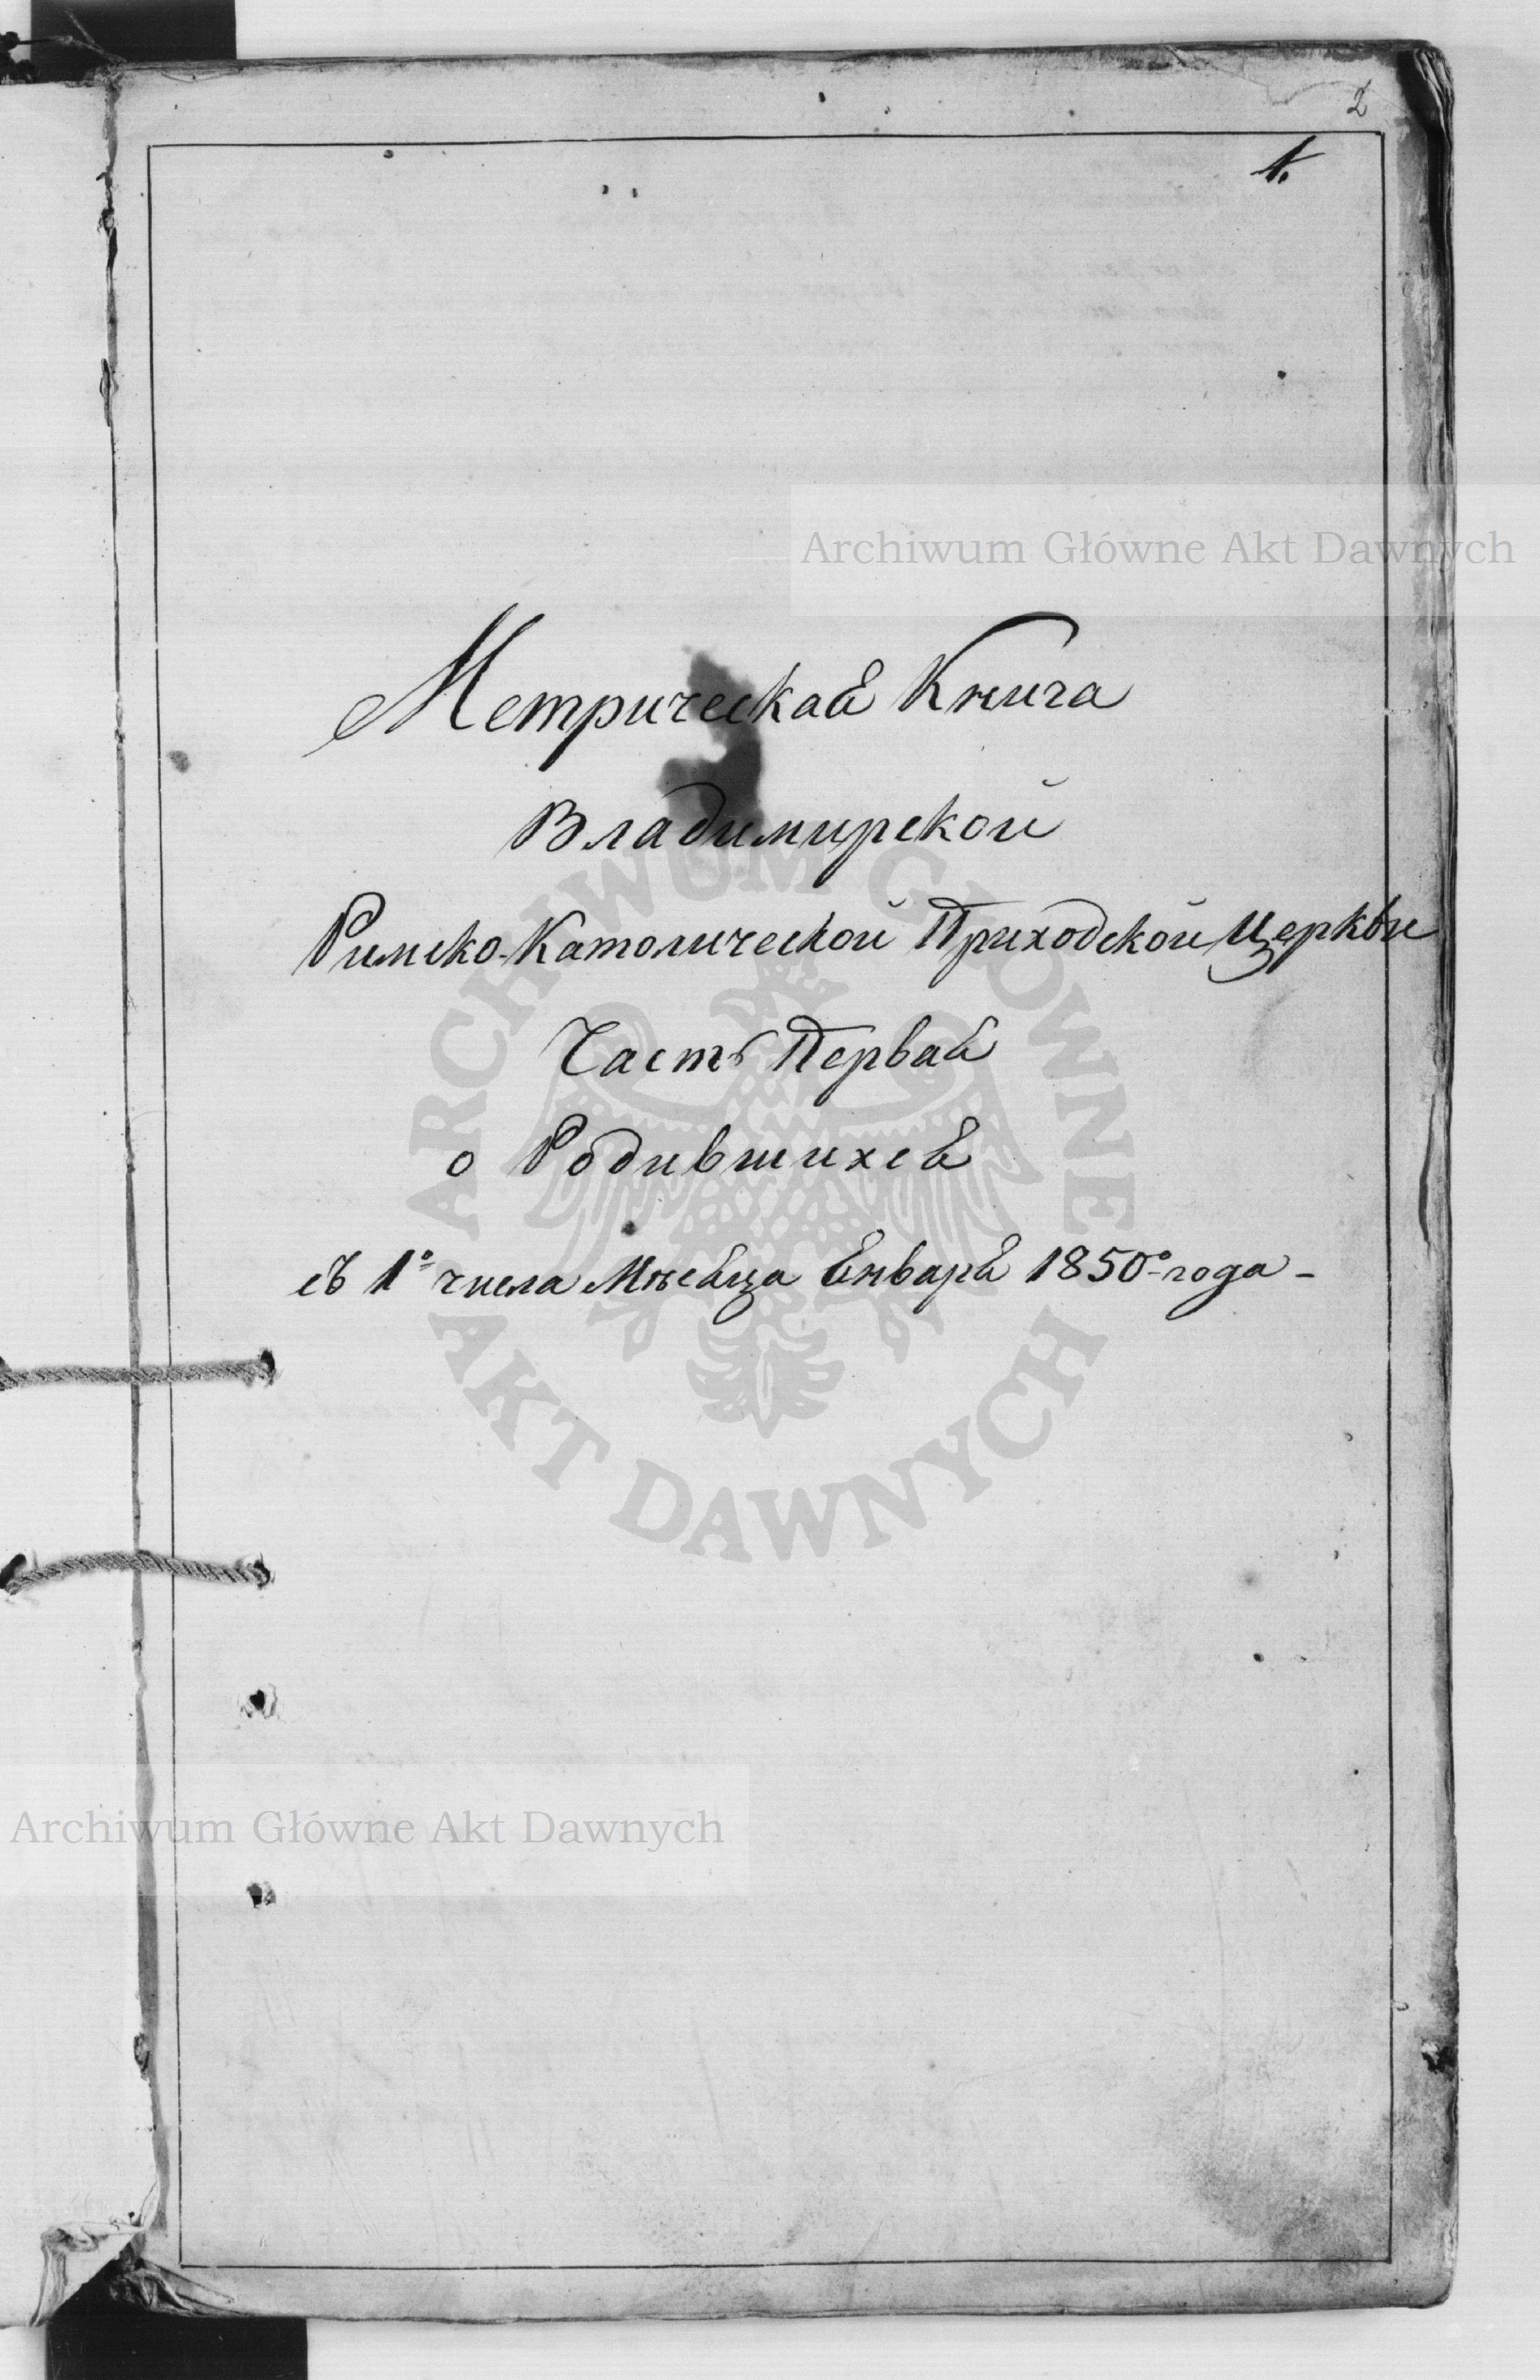 2
1.
Archiwum Główne Akt Dawnych
Метрическая Книга
Владимирской
Римско-Католической Приходской Церкви
Часть Первая
о Родившихся
съ 1º числа Мѣсяца Января 1850º года -
ARCHIWUM GŁÓWNE
AKT DAWNYCH
Archiwum Główne Akt Dawnych